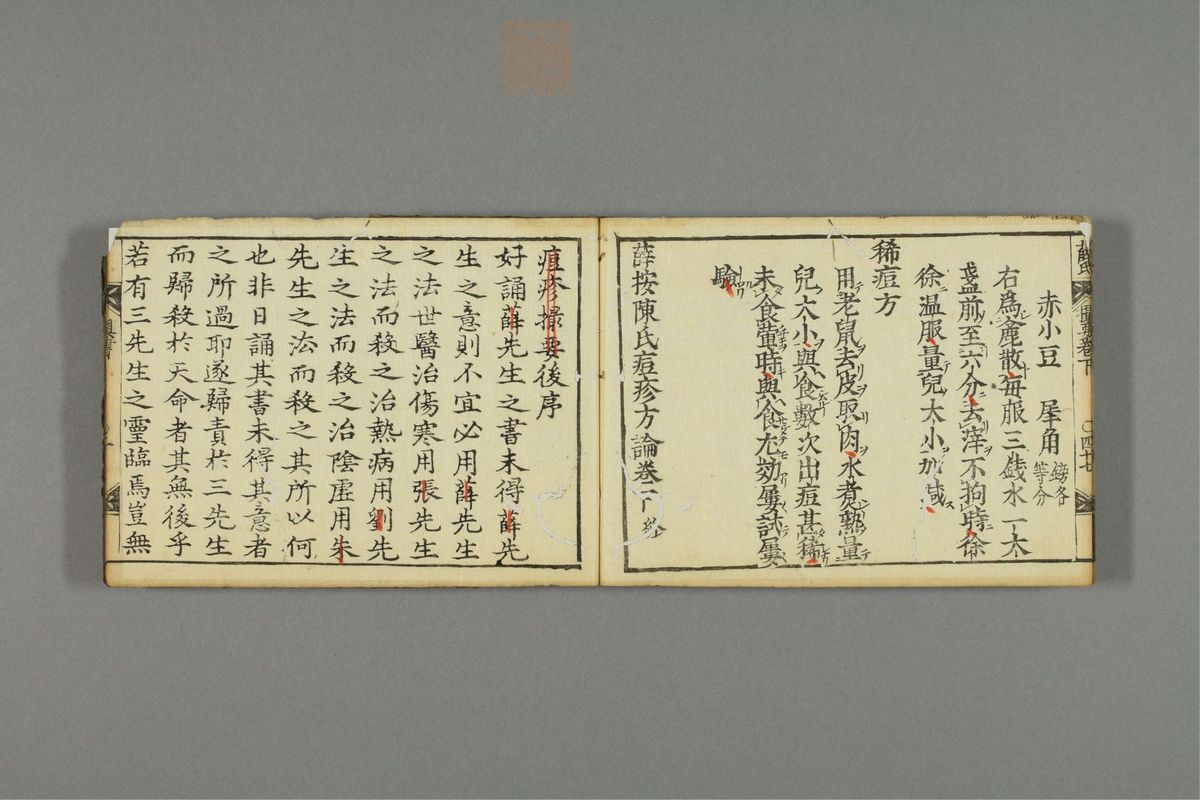 赤小豆　犀角鎊各等分
右為麄散每服三錢水一大
盞前至六分去滓不拘時徐
徐温服量兒大小加減
稀痘方
用老鼠去皮取肉水煮熟量
兒大小與食數次出痘甚稀
未食葷時與食尤効屢試屢
驗
薛按陳氏痘疹方論卷下終
痘疹撮要後序
好誦薛先生之書未得薛先
生之意則不宜必用薛先生
之法世醫治傷寒用張先生
之法而殺之治熱病用劉先
生之法而殺之治陰虛用朱
先生之法而殺之其所以何
也非日誦其書未得其意者
之所過耶遂歸責於三先生
而歸殺於天命者其無後乎
若有三先生之靈臨焉豈無